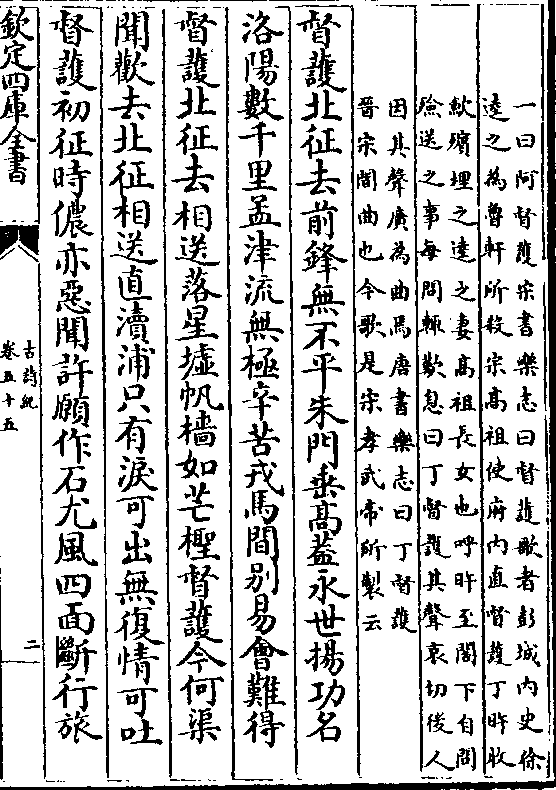 一曰阿督護宋書樂志曰督護歌者彭城内史徐
逵之為魯軒所殺宋高祖使府内直督護丁旿收
斂殯埋之逵之妻高祖長女也呼旿至閣下自問
殮送之事每問輒歎息曰丁督護其聲哀切後人
因其聲廣為曲焉唐書樂志曰丁督護
晉宋閒曲也今歌是宋孝武帝所製云
督護北征去前鋒無不平朱門垂高蓋永世揚功名
洛陽數千里孟津流無極辛苦戎馬間别易會難得
督護北征去相送落星墟帆檣如芒檉督護今何渠
聞歡去北征相送直瀆浦只有淚可出無復情可吐
督護初征時儂亦惡聞許願作石尤風四面斷行旅
欽定四庫全書
古詩紀
卷五十五
二